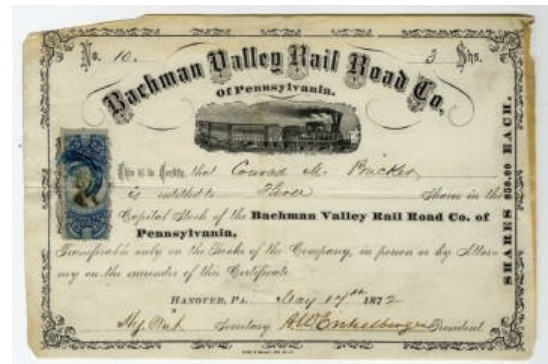 No. 10. 3 Shs.
Bachman Valley Rail Road Co.
Of Pennsylvania.
This is to Certify, that Conrad M. Bricker
is intitled to Three Shares in the
Capital Stock of the Bachman Valley Rail Road Co. of
Pennsylvania,
Transferable only on the Books of the Company, in person or by Attor
ney on the surrender of this Certificate.
HANOVER, PA. May 17th 1872
Secretary President.
SHARES $50.00 EACH.